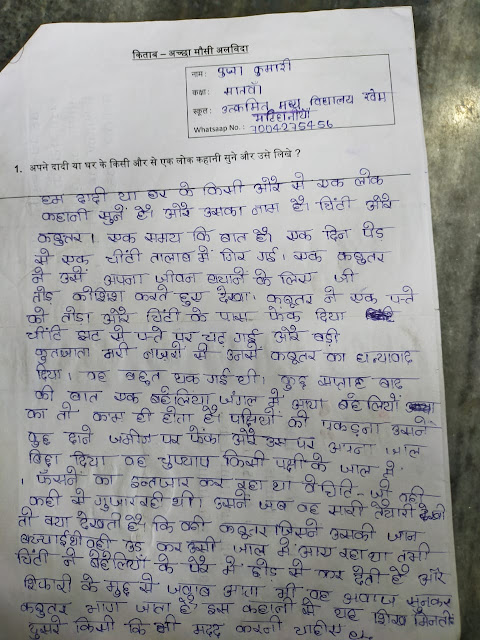 किताब – अच्छा मौसी अलविदा
नाम: पुजा कुमारी
कक्षा: सातवाँ
स्कूल: उत्क्रमित मध्य विद्यालय खेम
मटिहनीयाँ
Whatsaap No.: 7004275456
1. अपने दादी या घर के किसी और से एक लोक कहानी सुने और उसे लिखे ?
हम दादी या घर के किसी और से एक लोक
कहानी सुनें है। और उसका नाम है। चिंटी और
कबुतर। एक समय कि बात है। एक दिन पेड़
से एक चींटी तालाब में गिर गई। एक कबुतर
ने उसे अपना जीवन बचाने के लिए जी
तोड़ कोशिश करते हुए देखा। कबुतर ने एक पत्ते
को तोड़ा और चिंटी के पास फेंक दिया
चींटि झट से पत्ते पर चढ़ गई और बड़ी
कृतज्ञता भरी नजरों से उसने कबुतर का धन्यावाद
दिया। वह बहुत थक गई थी। कुछ सप्ताह बाद
की बात एक बहेलिया जंगल में आया बहेलियों
का तो काम ही होता है। पक्षियों को पकड़ना उसने
कुछ दाने जमीन पर फेंका और उस पर अपना जाल
बिछा दिया वह चुपचाप किसी पक्षी के जाल में
फँसने का इन्तजार कर रहा था वे चिंटि जो वही
कही से गुजर रही थी। उसने जब वह सारी तैयारी देखी
तो क्या देखती है कि वही कबुतर जिसने उसकी जान
बचाई थी वही उड़ कर उसी जाल में आय रहा था तभी
चिंटी ने बेहेलियों के पैर में
शिकारी के मुह से वह अवाज सुनकर
कबुतर भाग जाता है इस कहानी से यह शिख
दुसरे किसी कि भी मदद करनी चाहिए